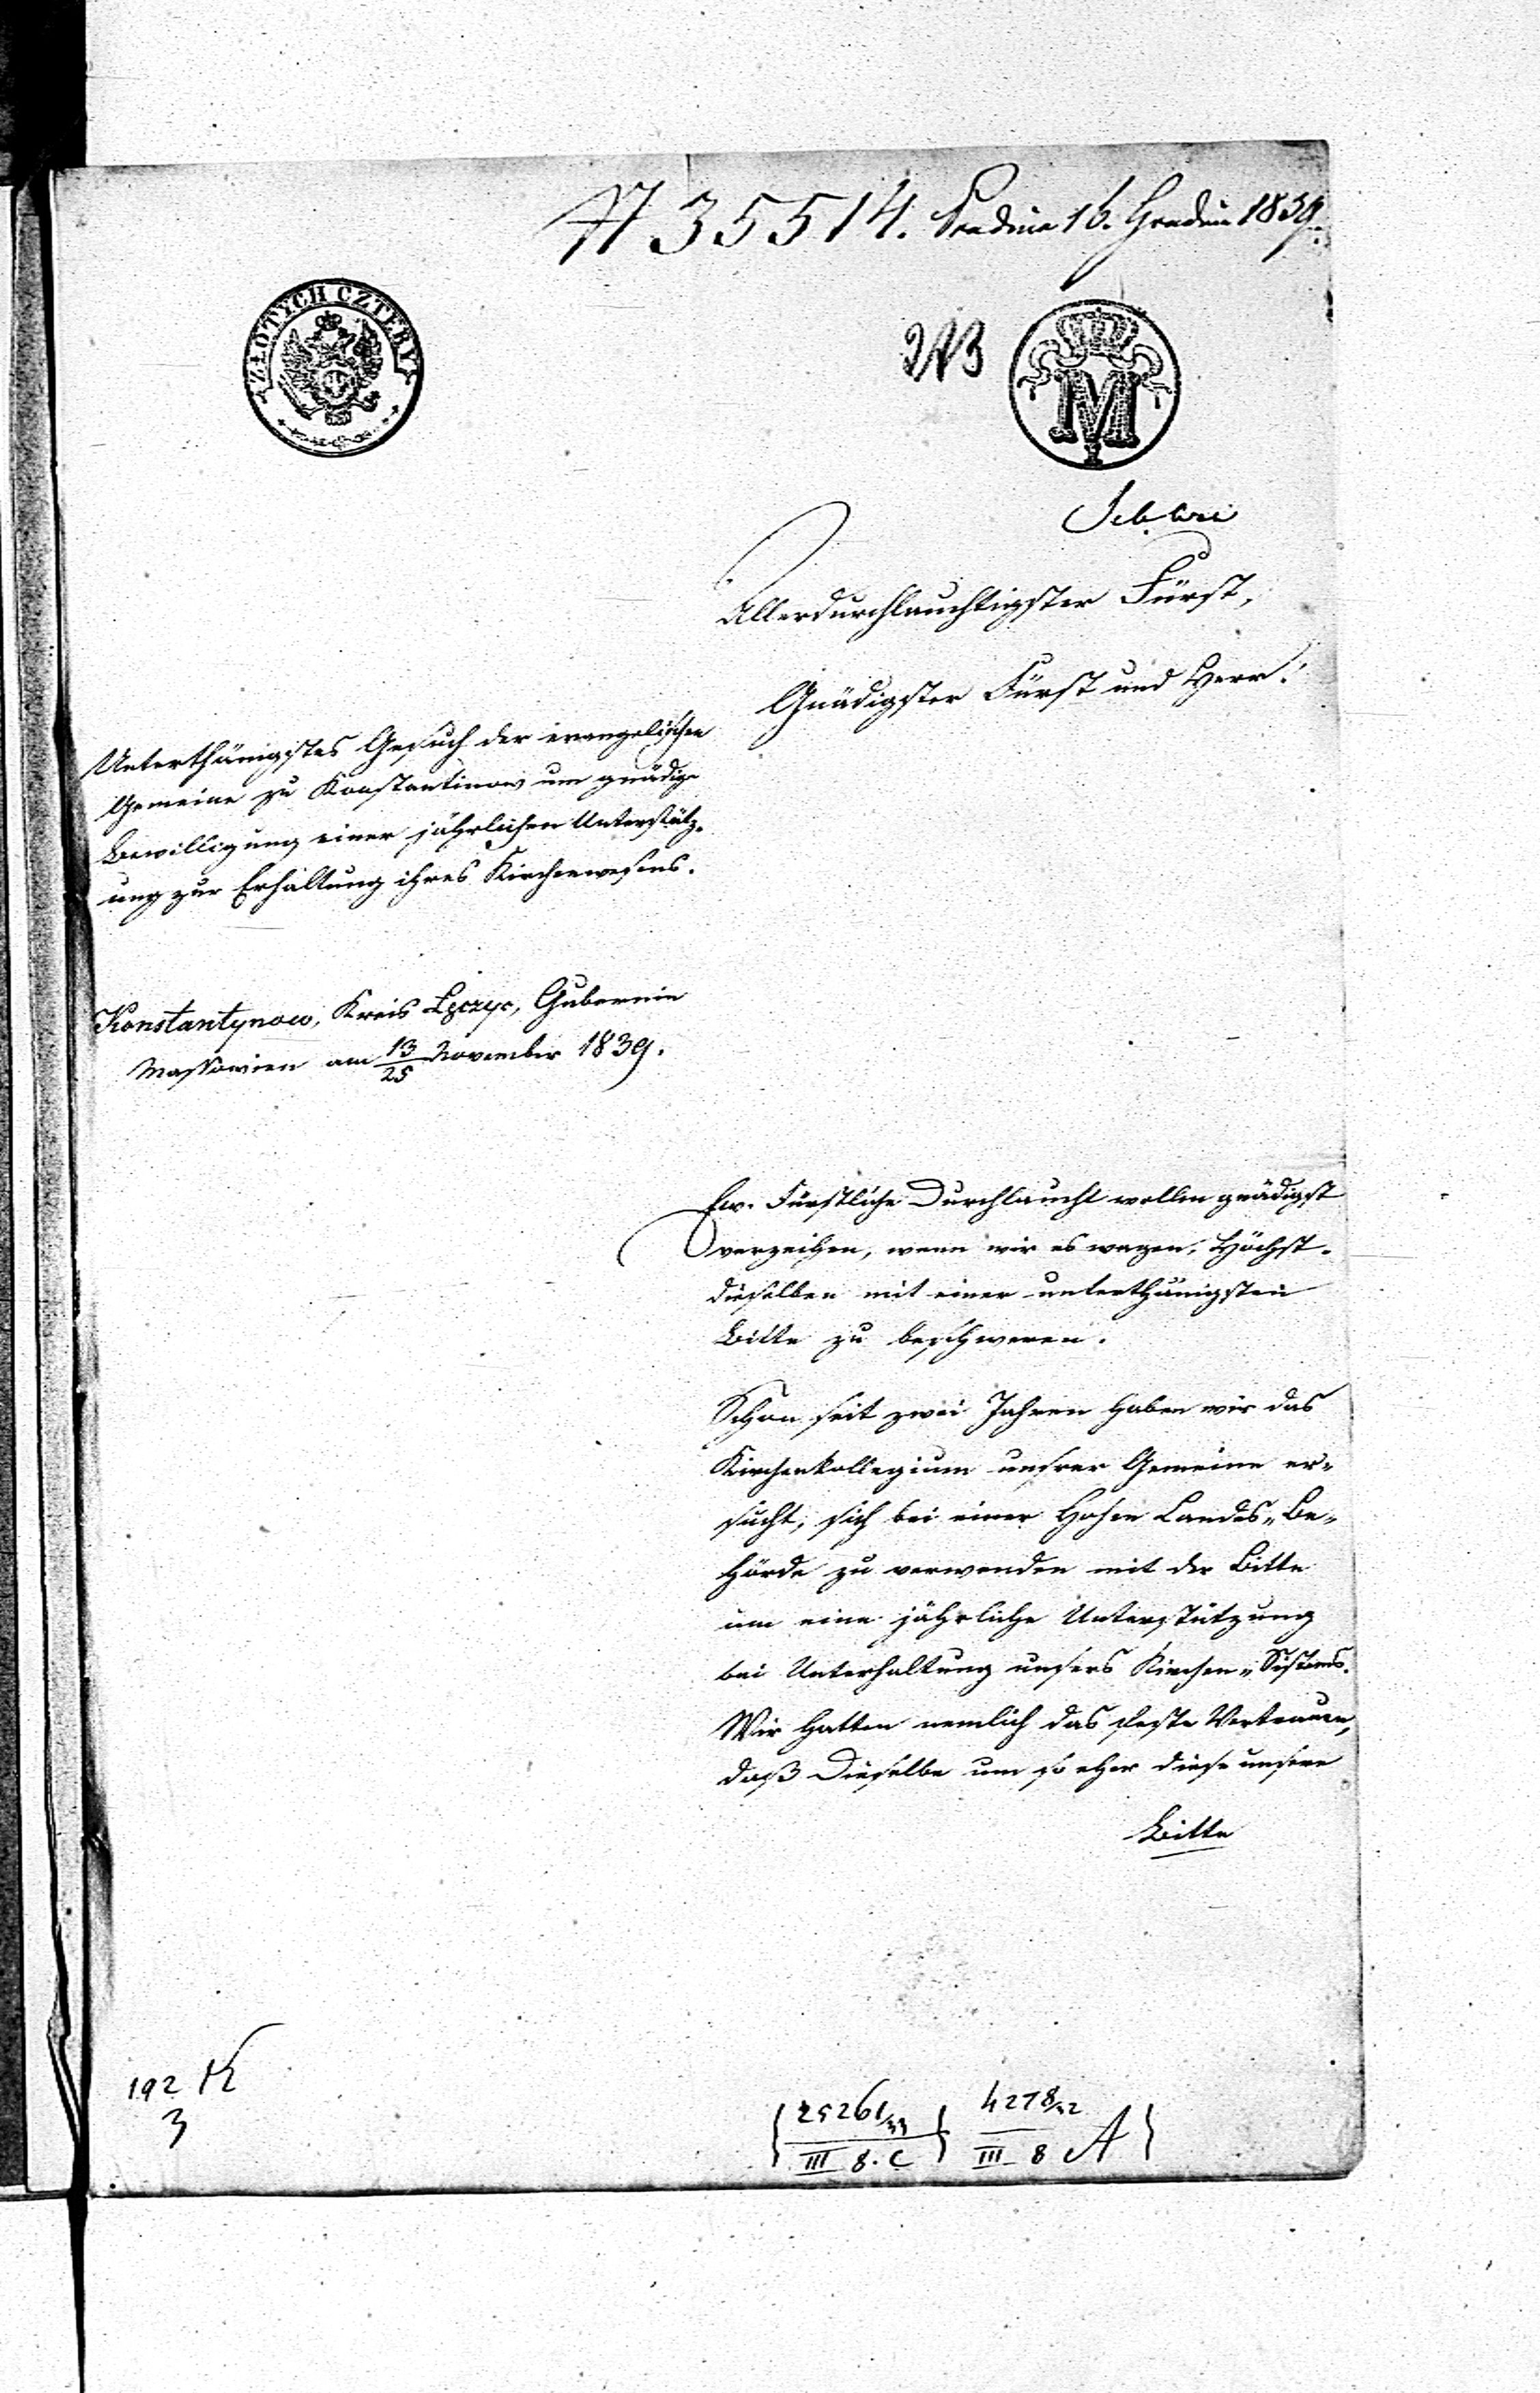 № 35514. Praes. 16. Grudnia 1839.
ZŁOTYCH CZTERY
M
Allerdurchlauchtigster Fürst,
Gnädigster Fürst und Herr!
Unterthänigstes Gesuch der evangelischen
Gemeine zu Konstantinow um gnädige
Bewilligung einer jährlichen Unterstütz-
ung zur Erhaltung ihres Kirchenwesens.
Konstantynow, Kreis Łęczyc, Gubernie
Massowien am 13/25 November 1839.
Ew. Fürstliche Durchlaucht wollen gnädigst
verzeihen, wenn wir es wagen, Höchst-
dieselben mit einer unterthänigsten
Bitte zu beschweren.
Schon seit zwei Jahren haben wir das
Kirchenkollegium unsrer Gemeine er-
sucht, sich bei einer Hohen Landes-Be-
hörde zu verwenden mit der Bitte
um eine jährliche Unterstützung
bei Unterhaltung unsers Kirchen-Sistems.
Wir hatten nemlich das feste Vertrauen,
daß Dieselbe um so eher diese unsere
Bitte
192 K
3
25261/33 4278/32
III 8. C III 8 A